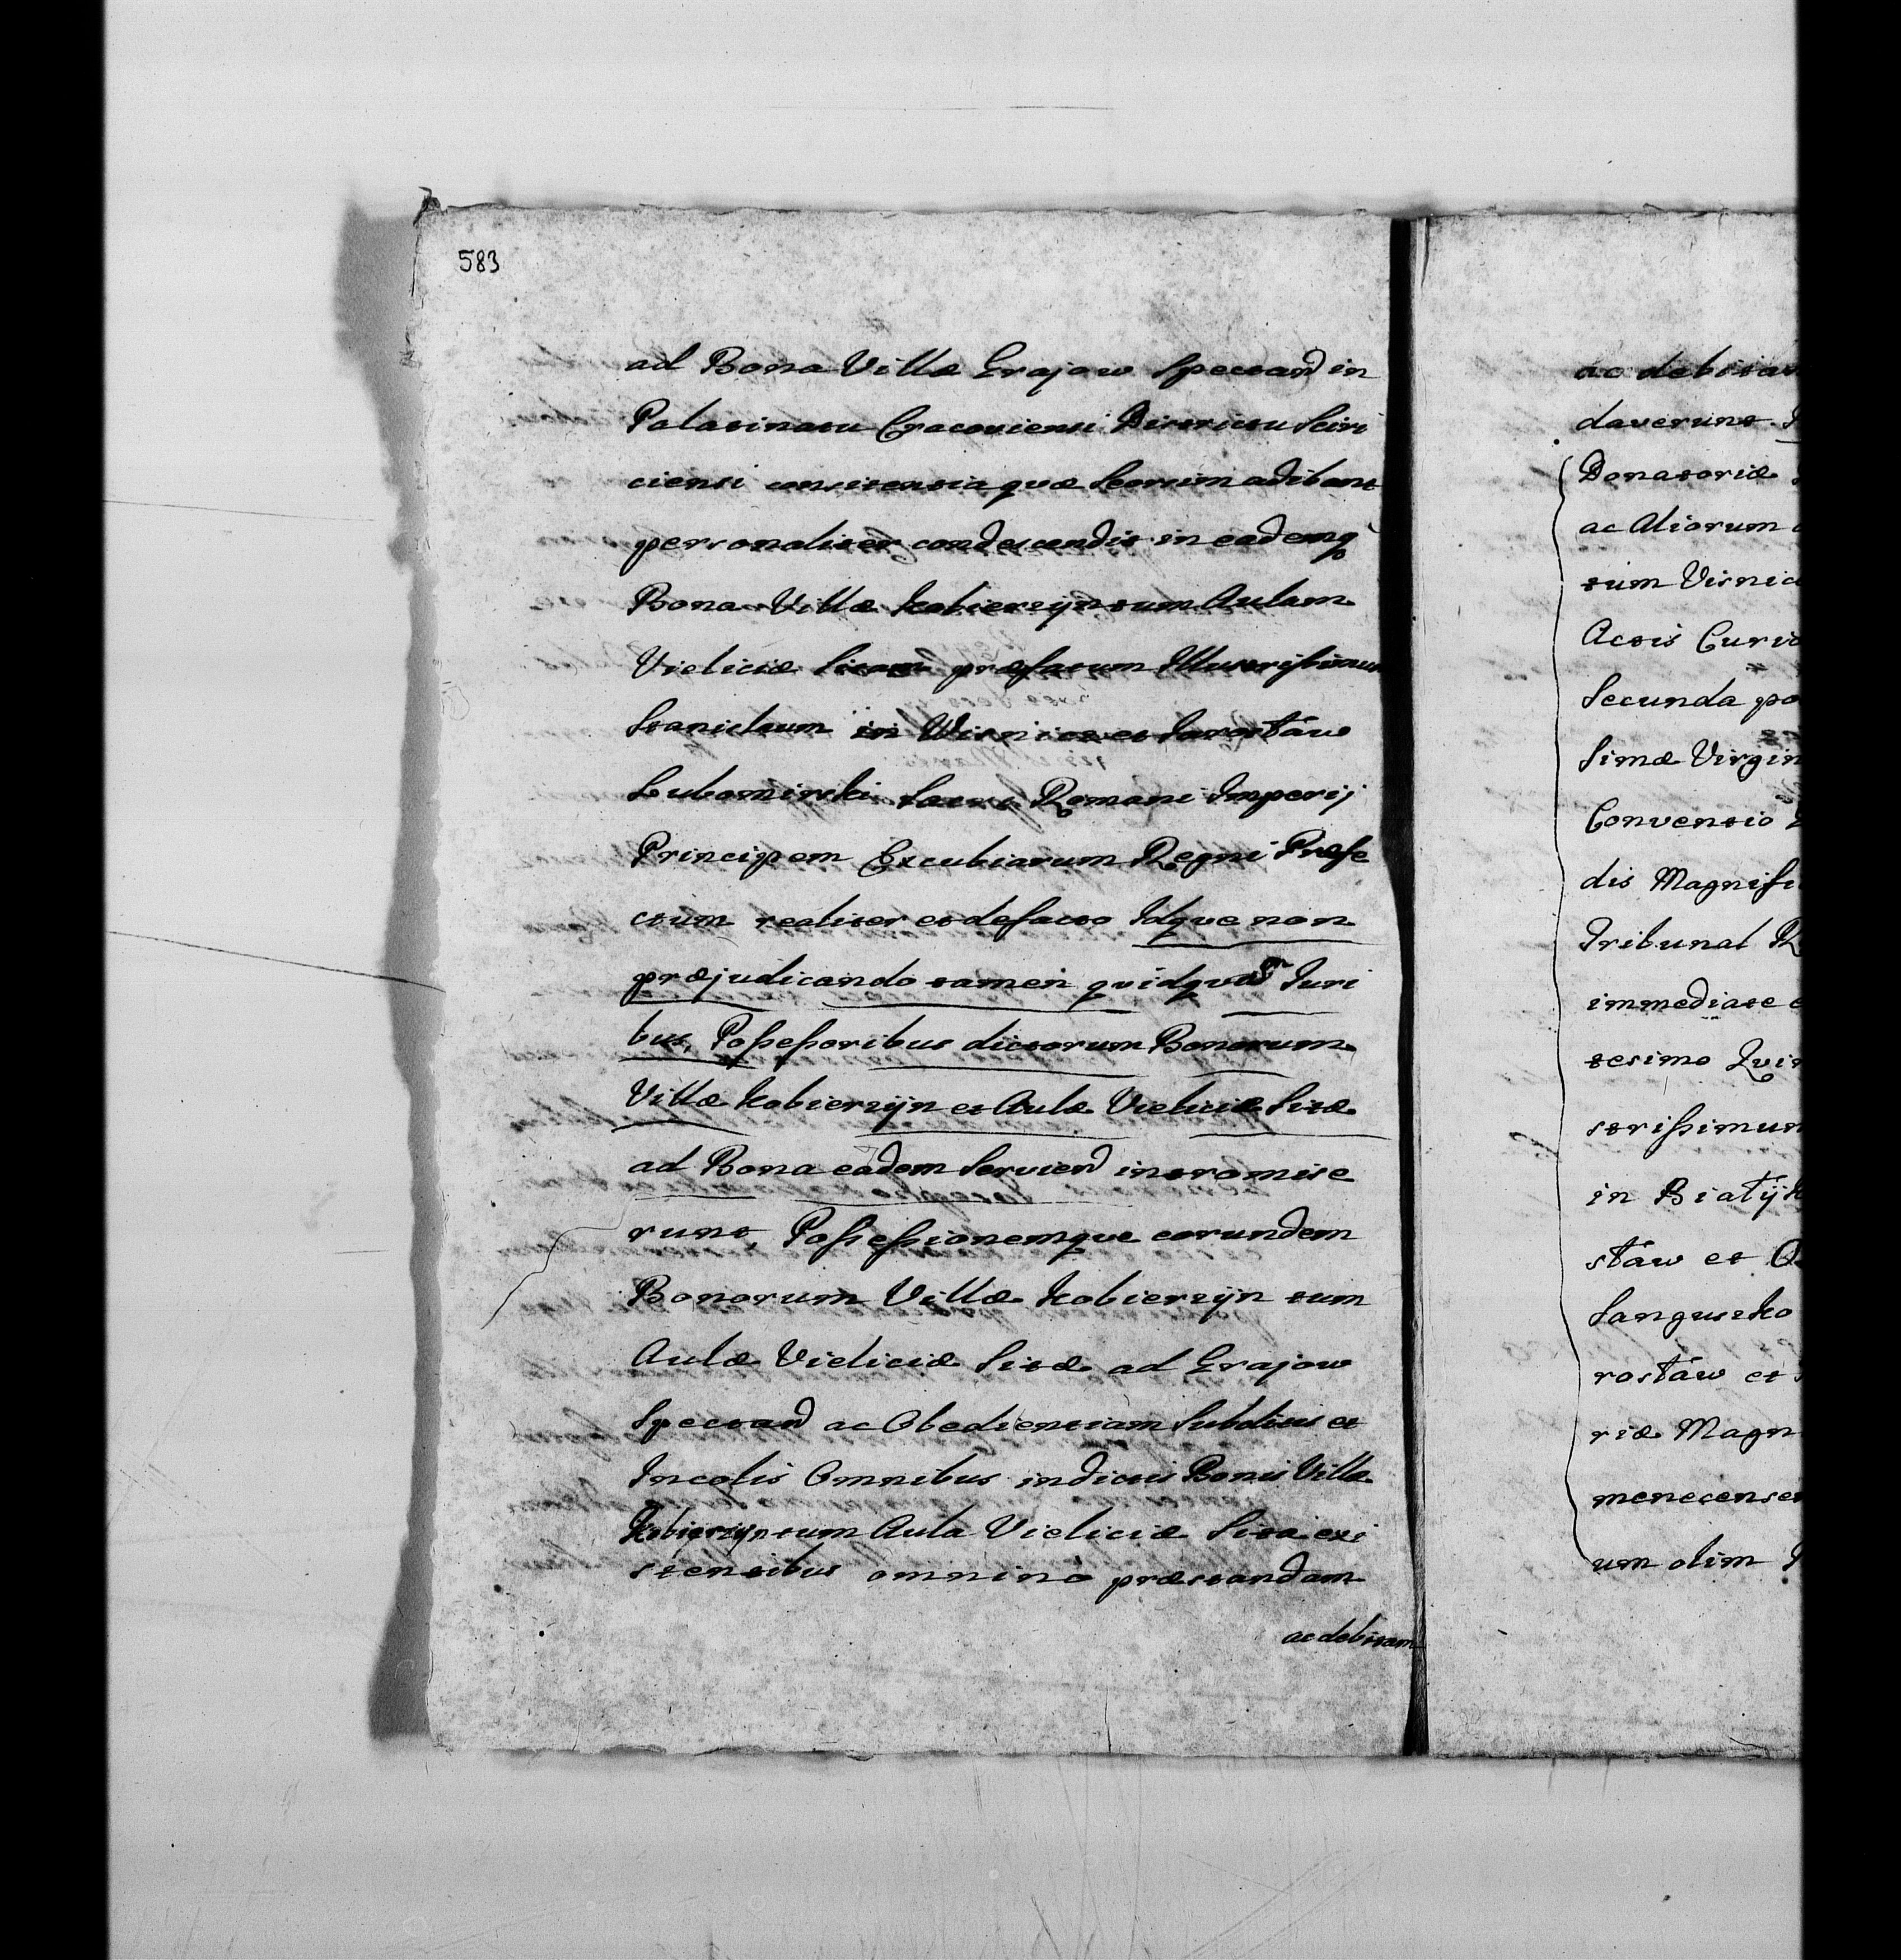 583
ad Bona Villæ Grajow Spectand in
Palatinatu Cracoviensi Districtu Sciri
ciensi consistentia quæ Seorsim adibant
personaliter condescendit in eademq
Bona Villæ Kobierzyn tum Aulam
Vieliciæ Sitam præfatum Illustrissimum
Stanislaum in Wisnicz et Jarostáw
Lubomirski Sacri Romani Imperij
Principem Excubiarum Regni Præfe
ctum realiter et de facto Idque non
præjudicando tamen quidquam Juri
bus, Possessoribus dictorum Bonorum
Villæ Kobierzyn et Aulæ Vieliciæ Sitæ
ad Bona eadem Serviend intromise
runt, Possessionemque eorundem
Bonorum Villæ Kobierzyn tum
Aulæ Vieliciæ Sitæ ad Grajow
Spectand ac Obedientiam Subditis et
Incolis Omnibus in dictis Bonis Villæ
Kobierzyn tum Aula Vieliciæ Sita exi
stentibus omninò præstandam
ac debitam
ac debitam
daverunt.
Donatoriæ
ac Aliorum
tum Visnic
Actis Curi
Secunda po
simæ Virgin
Conventio
dis Magnifi
Tribunal R
immediate
tesimo Qvin
strissimum
in Biatÿ
stáw et
Sanguszko
rostáw et
riæ Magn
menecense
um olim